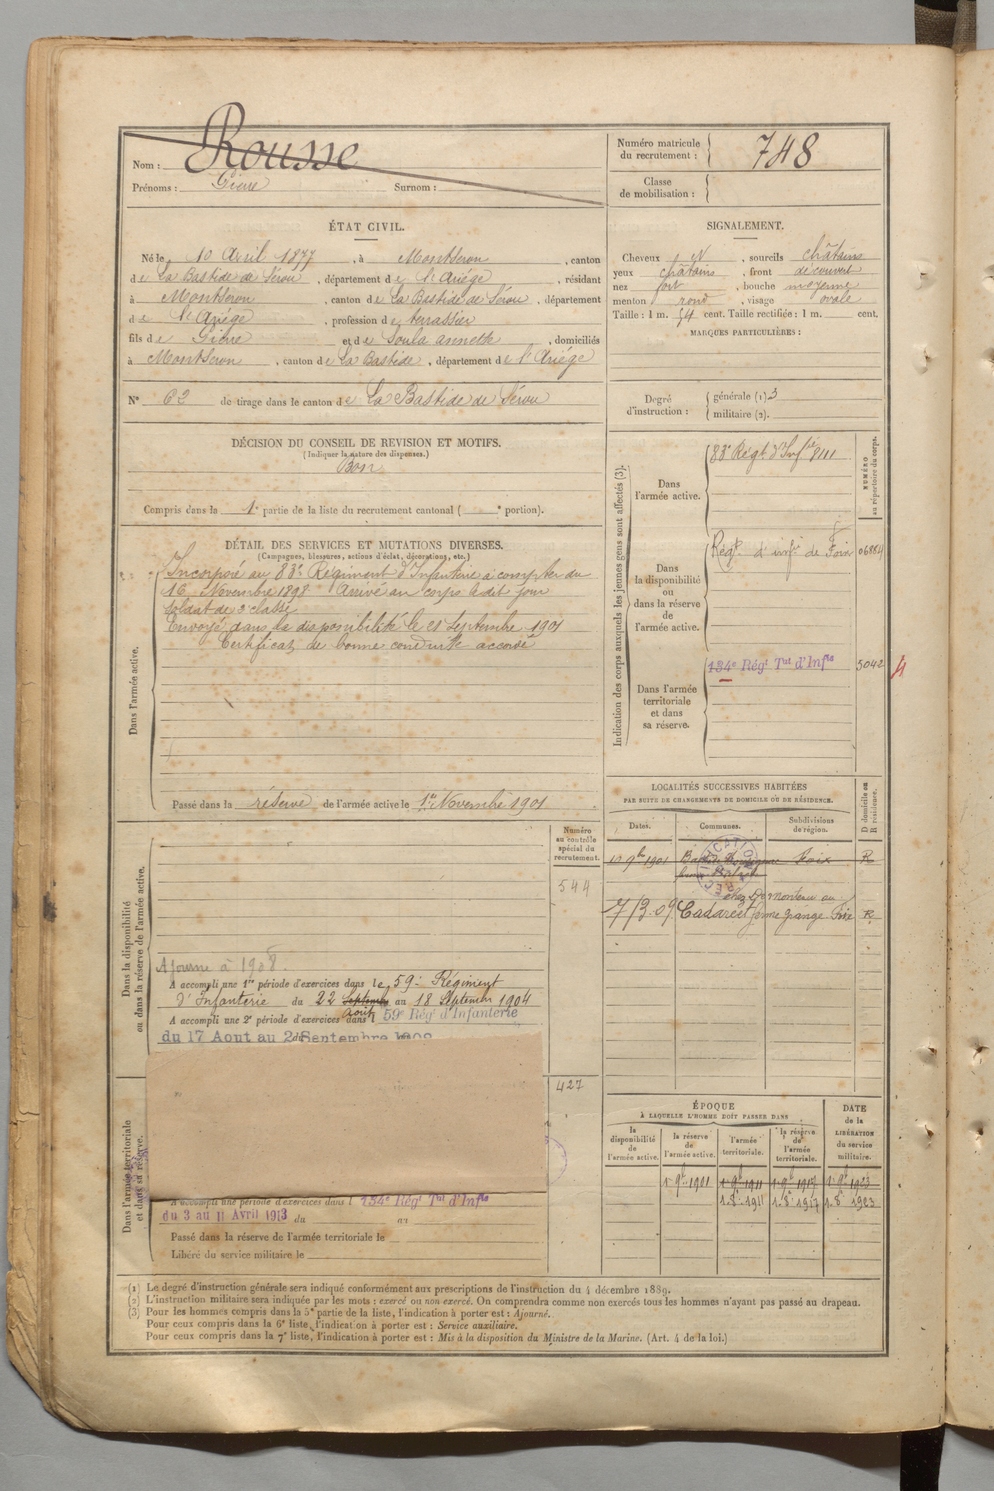 Nom : Rousse
Prénoms : Surnom :
Numéro matricule du recrutement : 748
Classe de mobilisation :
ÉTAT CIVIL.
Né le 10 Avril 1877, à Montseron, canton
de La Bastide de Sérou, département de l'Ariége, résidant
à Montseron, canton de La Bastide de Sérou, département
de l'Ariége, profession de terrassier
fils de et de Soula annette, domiciliés
à Montseron, canton de La Bastide, département de l'Ariége
N° 62 de tirage dans le canton de La Bastide de Sérou
SIGNALEMENT.
Cheveux N, sourcils châtains
yeux châtains, front découvert
nez fort, bouche moyenne
menton rond, visage ovale
Taille : 1 m. 54 cent. Taille rectifiée : 1 m. cent.
MARQUES PARTICULIÈRES :
Degré d'instruction : générale (1) 3
militaire (2).
DÉCISION DU CONSEIL DE REVISION ET MOTIFS.
(Indiquer la nature des dispenses.)
Bon
Compris dans la 1e partie de la liste du recrutement cantonal ( e portion).
DÉTAIL DES SERVICES ET MUTATIONS DIVERSES.
(Campagnes, blessures, actions d'éclat, décorations, etc.)
Dans l'armée active.
Incorporé au 83e Régiment d'Infanterie à compter du
16 Novembre 1898 Arrivé au corps le dit jour
soldat de 2e classe
Envoyé dans la disponibilité le 21 Septembre 1901
Certificat de bonne conduite accordé
Passé dans la réserve de l'armée active le 1er Novembre 1901
Indication des corps auxquels les jeunes gens sont affectés (3).
NUMÉRO au répertoire du corps.
Dans l'armée active.
83e Régt d'Infie 8111
Dans la disponibilité ou dans la réserve de l'armée active.
Régt d'infie de Foix 06884
Dans l'armée territoriale et dans sa réserve.
134e Régt Tal d'Infie 5042
4
LOCALITÉS SUCCESSIVES HABITÉES
PAR SUITE DE CHANGEMENTS DE DOMICILE OU DE RÉSIDENCE.
Dates. Communes. Subdivisions de région. D domicile ou R résidence.
10 9bre 1901 Foix R
chez
7/3.09 Cadarcet ferme grange Foix R
Numéro au contrôle spécial du recrutement.
544
Dans la disponibilité ou dans la réserve de l'armée active.
Ajourné à 1908.
A accompli une 1re période d'exercices dans le 59e Régiment
d'Infanterie du 22 Septembre Août au 18 Septembre 1904
A accompli une 2e période d'exercices dans l 59e Régt d'Infanterie
du 17 Aout au 2 Septembre
427
Dans l'armée territoriale et dans sa réserve.
A accompli une période d'exercices dans l 134e Régt Tal d'Infie
du 3 au 11 Avril 1913 du au
Passé dans la réserve de l'armée territoriale le
Libéré du service militaire le
ÉPOQUE
À LAQUELLE L'HOMME DOIT PASSER DANS
la disponibilité de l'armée active. la réserve de l'armée active. l'armée territoriale. la réserve de l'armée territoriale.
DATE de la LIBÉRATION du service militaire.
1 9bre 1901 1 9bre 1911 1 9bre 1917 1 9bre 1923
1.8e 1911 1.8e 1917 1.8e 1923
(1) Le degré d'instruction générale sera indiqué conformément aux prescriptions de l'instruction du 4 décembre 1889.
(2) L'instruction militaire sera indiquée par les mots : exercé ou non exercé. On comprendra comme non exercés tous les hommes n'ayant pas passé au drapeau.
(3) Pour les hommes compris dans la 5e partie de la liste, l'indication à porter est : Ajourné.
Pour ceux compris dans la 6e liste, l'indication à porter est : Service auxiliaire.
Pour ceux compris dans la 7e liste, l'indication à porter est : Mis à la disposition du Ministre de la Marine. (Art. 4 de la loi.)